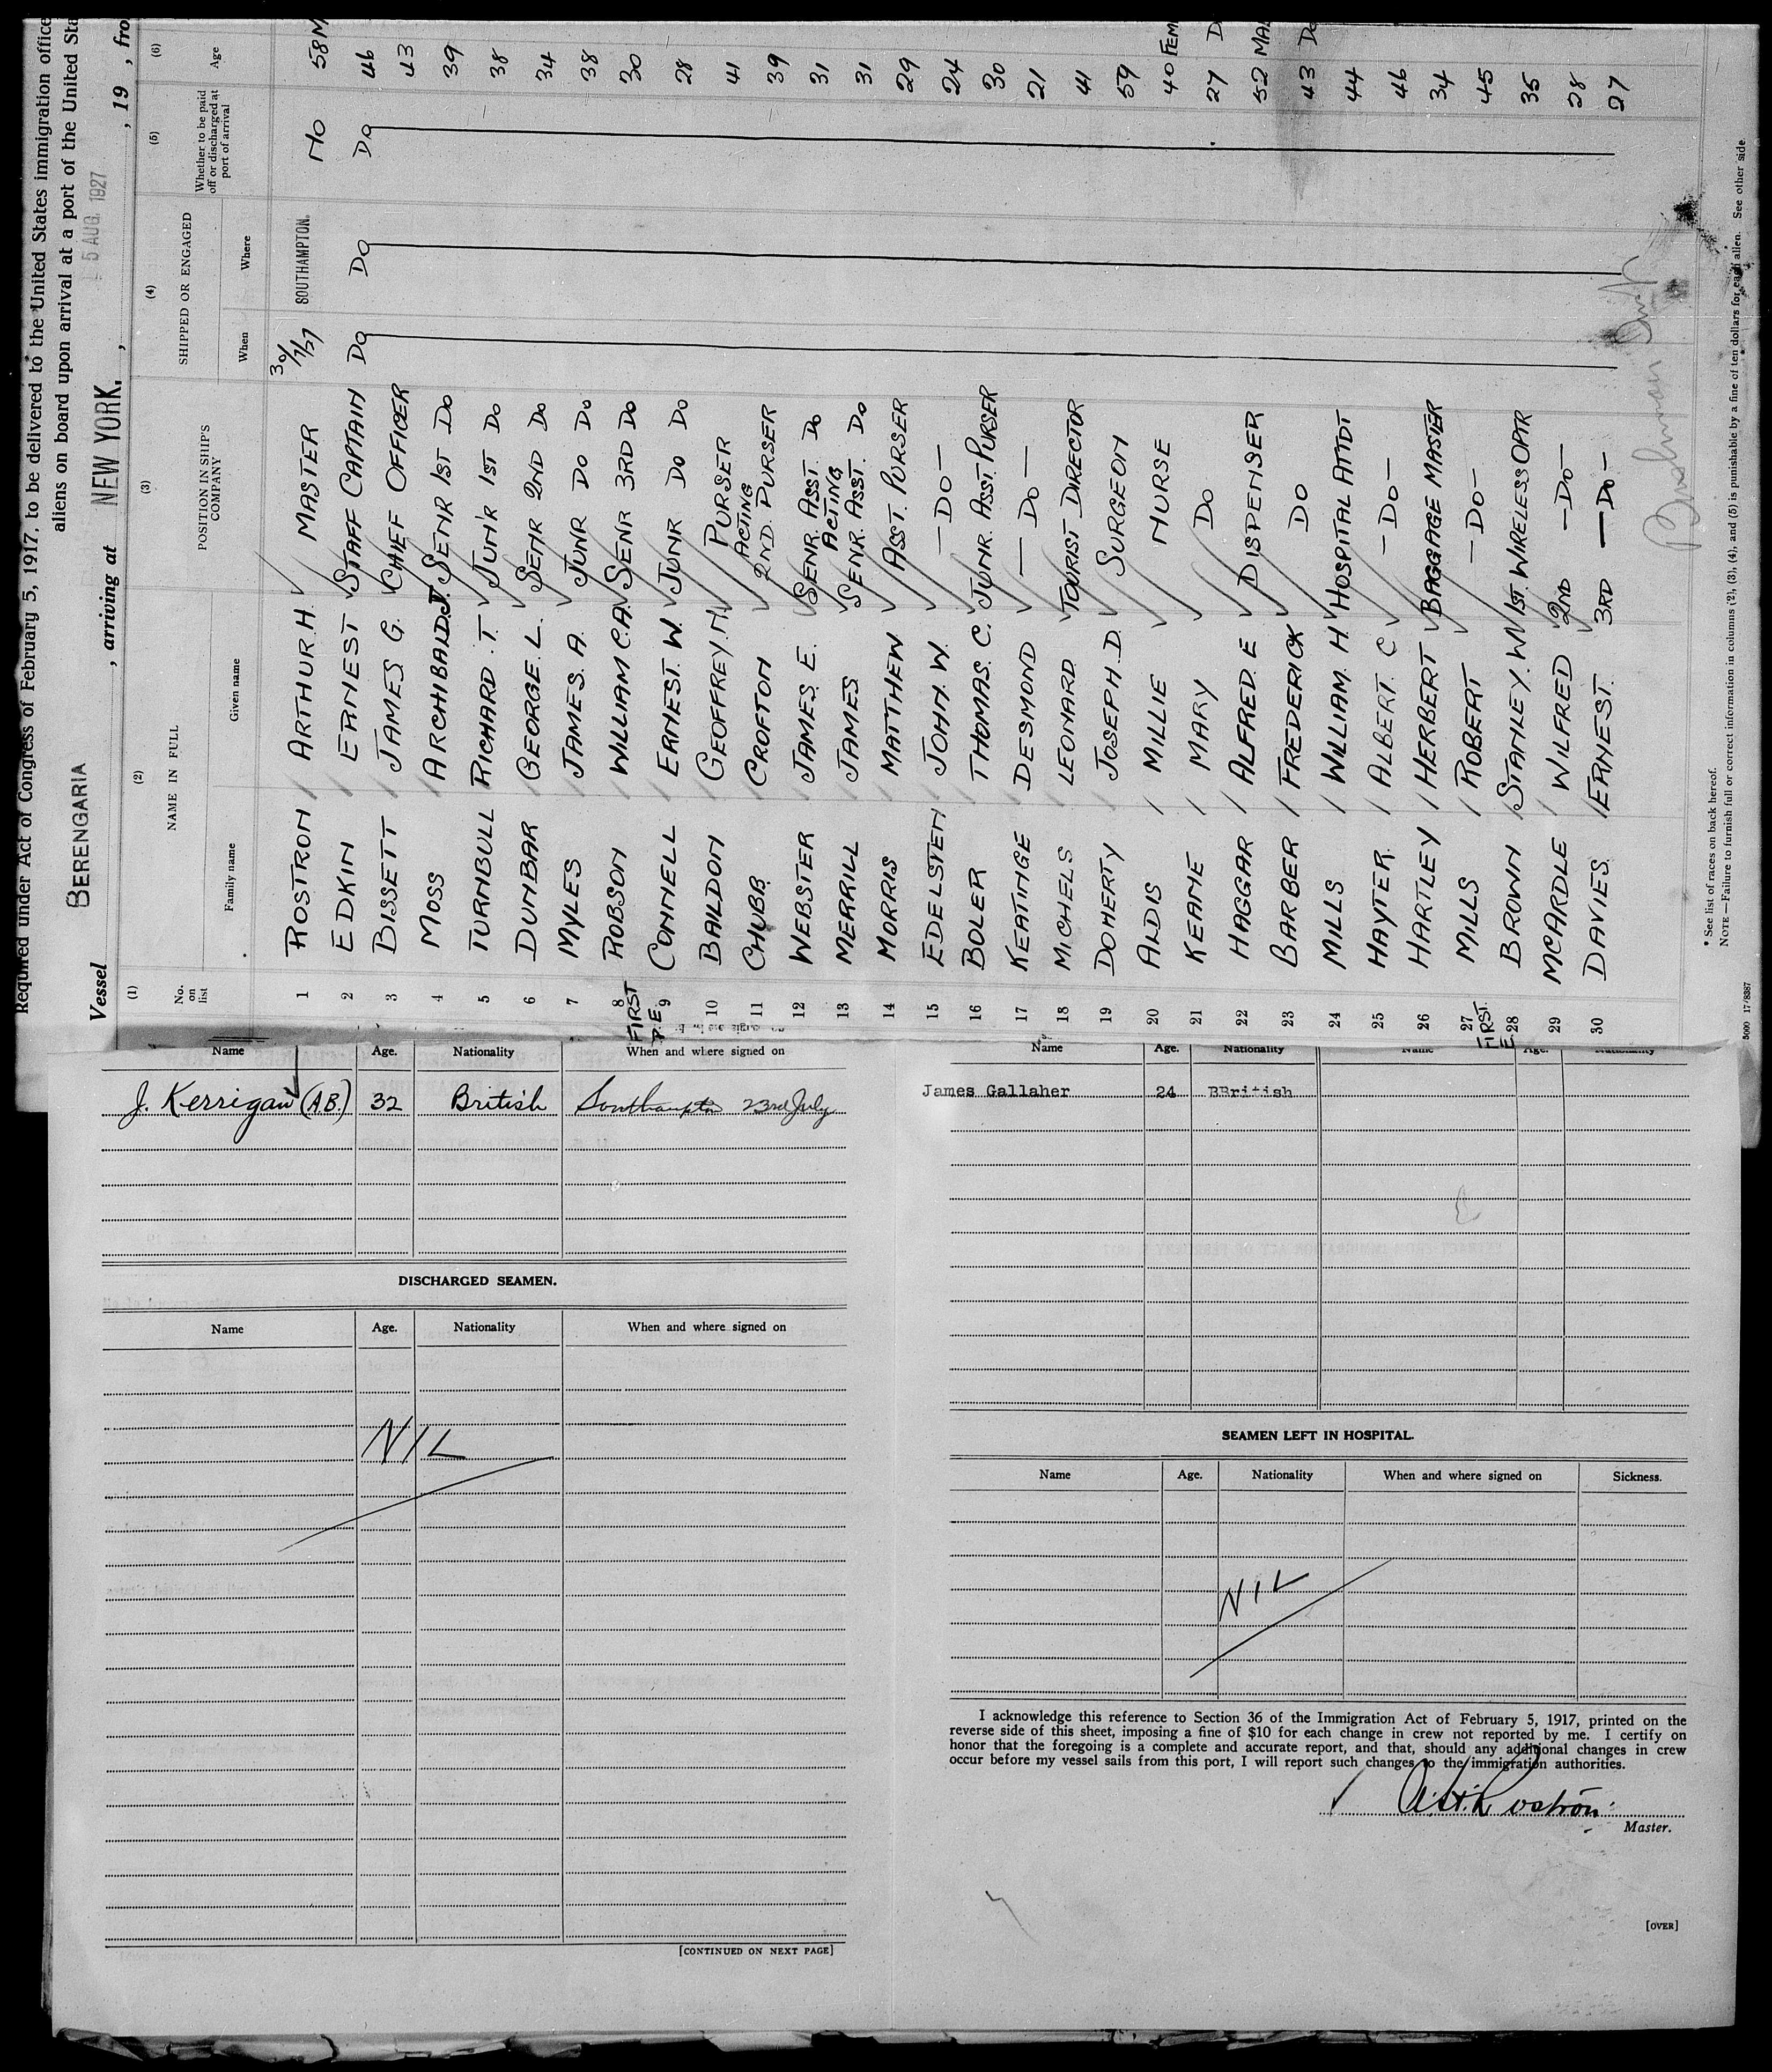 Required under Act of Congress of February 5, 1917, to be delivered to the United States immigration office
aliens on board upon arrival at a port of the United Sta
Vessel BERENGARIA , arriving at NEW YORK. , 5 AUG. 1927 , 19 , fro
(1) (2) (3) (4) (5) (6)
No. on list NAME IN FULL POSITION IN SHIP'S COMPANY SHIPPED OR ENGAGED Whether to be paid off or discharged at port of arrival Age
Family name Given name When Where
1 ROSTRON ARTHUR H. MASTER 30/7/27 SOUTHAMPTON. NO 58 M
2 EDKIN ERNEST STAFF CAPTAIN DO DO DO 46
3 BISSETT JAMES G. CHIEF OFFICER 43
4 MOSS ARCHIBALD J. SENR 1ST DO 39
5 TURNBULL RICHARD. T. JUNR 1ST DO 38
6 DUNBAR GEORGE. L. SENR 2ND DO 34
7 MYLES JAMES. A. JUNR DO DO 38
8 ROBSON WILLIAM C.A. SENR 3RD DO 30
FIRST
9 CONNELL ERNEST. W. JUNR DO DO 28
10 BAILDON GEOFFREY. N. PURSER 41
11 CHUBB. CROFTON ACTING 2ND. PURSER 39
12 WEBSTER JAMES. E. SENR. ASST. DO 31
13 MERRILL JAMES ACTING SENR. ASST. DO 31
14 MORRIS MATTHEW ASST. PURSER 29
15 EDELSTEN JOHN. W. —DO— 24
16 BOLER THOMAS. C. JUNR. ASST. PURSER 30
17 KEATINGE DESMOND —DO— 21
18 MICHELS LEONARD. TOURIST DIRECTOR 41
19 DOHERTY JOSEPH. D. SURGEON 59
20 ALDIS MILLIE NURSE 40 FEM
21 KEANE MARY DO 27 D
22 HAGGAR ALFRED. E DISPENSER 52 MA
23 BARBER FREDERICK DO 43 DO
24 MILLS WILLIAM. H. HOSPITAL ATTDT 44
25 HAYTER ALBERT. C —DO— 46
26 HARTLEY HERBERT BAGGAGE MASTER 34
27 MILLS ROBERT —DO— 45
FIRST.
28 BROWN STANLEY. W. 1ST. WIRELESS OPTR 35
29 MCARDLE WILFRED 2ND —DO— 28
30 DAVIES. ERNEST. 3RD —DO— 27
* See list of races on back hereof.
NOTE—Failure to furnish full or correct information in columns (2), (3), (4), and (5) is punishable by a fine of ten dollars for each alien. See other side
5000 17/8387
Name Age. Nationality When and where signed on
J. Kerrigan (A.B.) 32 British Southampton 23rd July
DISCHARGED SEAMEN.
Name Age. Nationality When and where signed on
NIL
[CONTINUED ON NEXT PAGE]
Name Age. Nationality Name Age. Nationality
James Gallaher 24 BBritish
SEAMEN LEFT IN HOSPITAL.
Name Age. Nationality When and where signed on Sickness.
NIL
I acknowledge this reference to Section 36 of the Immigration Act of February 5, 1917, printed on the
reverse side of this sheet, imposing a fine of $10 for each change in crew not reported by me. I certify on
honor that the foregoing is a complete and accurate report, and that, should any additional changes in crew
occur before my vessel sails from this port, I will report such changes to the immigration authorities.
A. H. Rostron
Master.
[OVER]